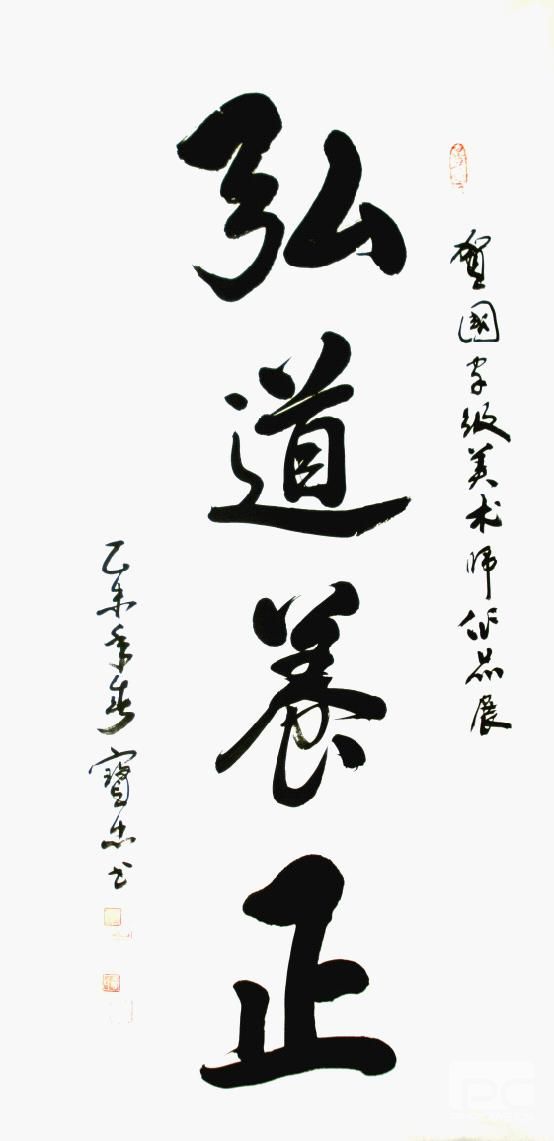 賀國家级美术师作品展
弘道養正
乙未年春寶忠书